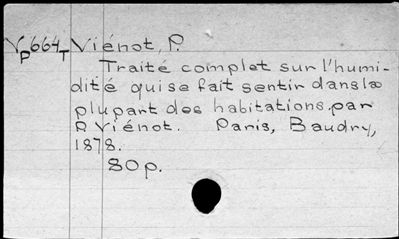 Vp664T Viénot, P.
Traité complet sur l'humi-
dité qui se fait sentir dans la
plupart des habitations. par
P. Viénot. Paris, Baudry,
1878.
80 p.